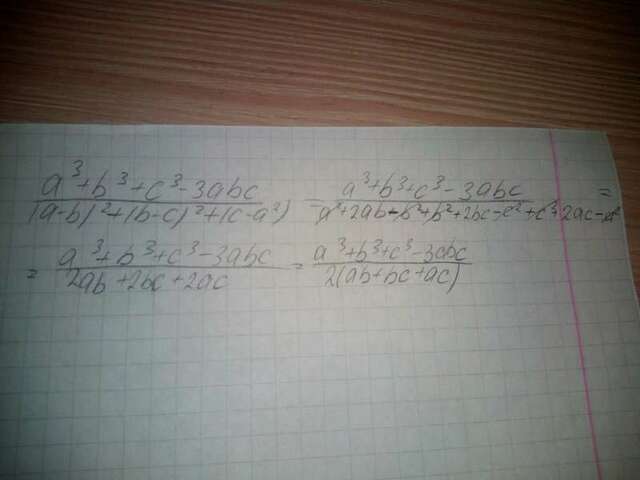 a³+b³+c³-3abc / (a-b)²+(b-c)²+(c-a²) = a³+b³+c³-3abc / a²+2ab-b²+b²+2bc-c²+c²+2ac-a² =
= a³+b³+c³-3abc / 2ab+2bc+2ac = a³+b³+c³-3abc / 2(ab+bc+ac)